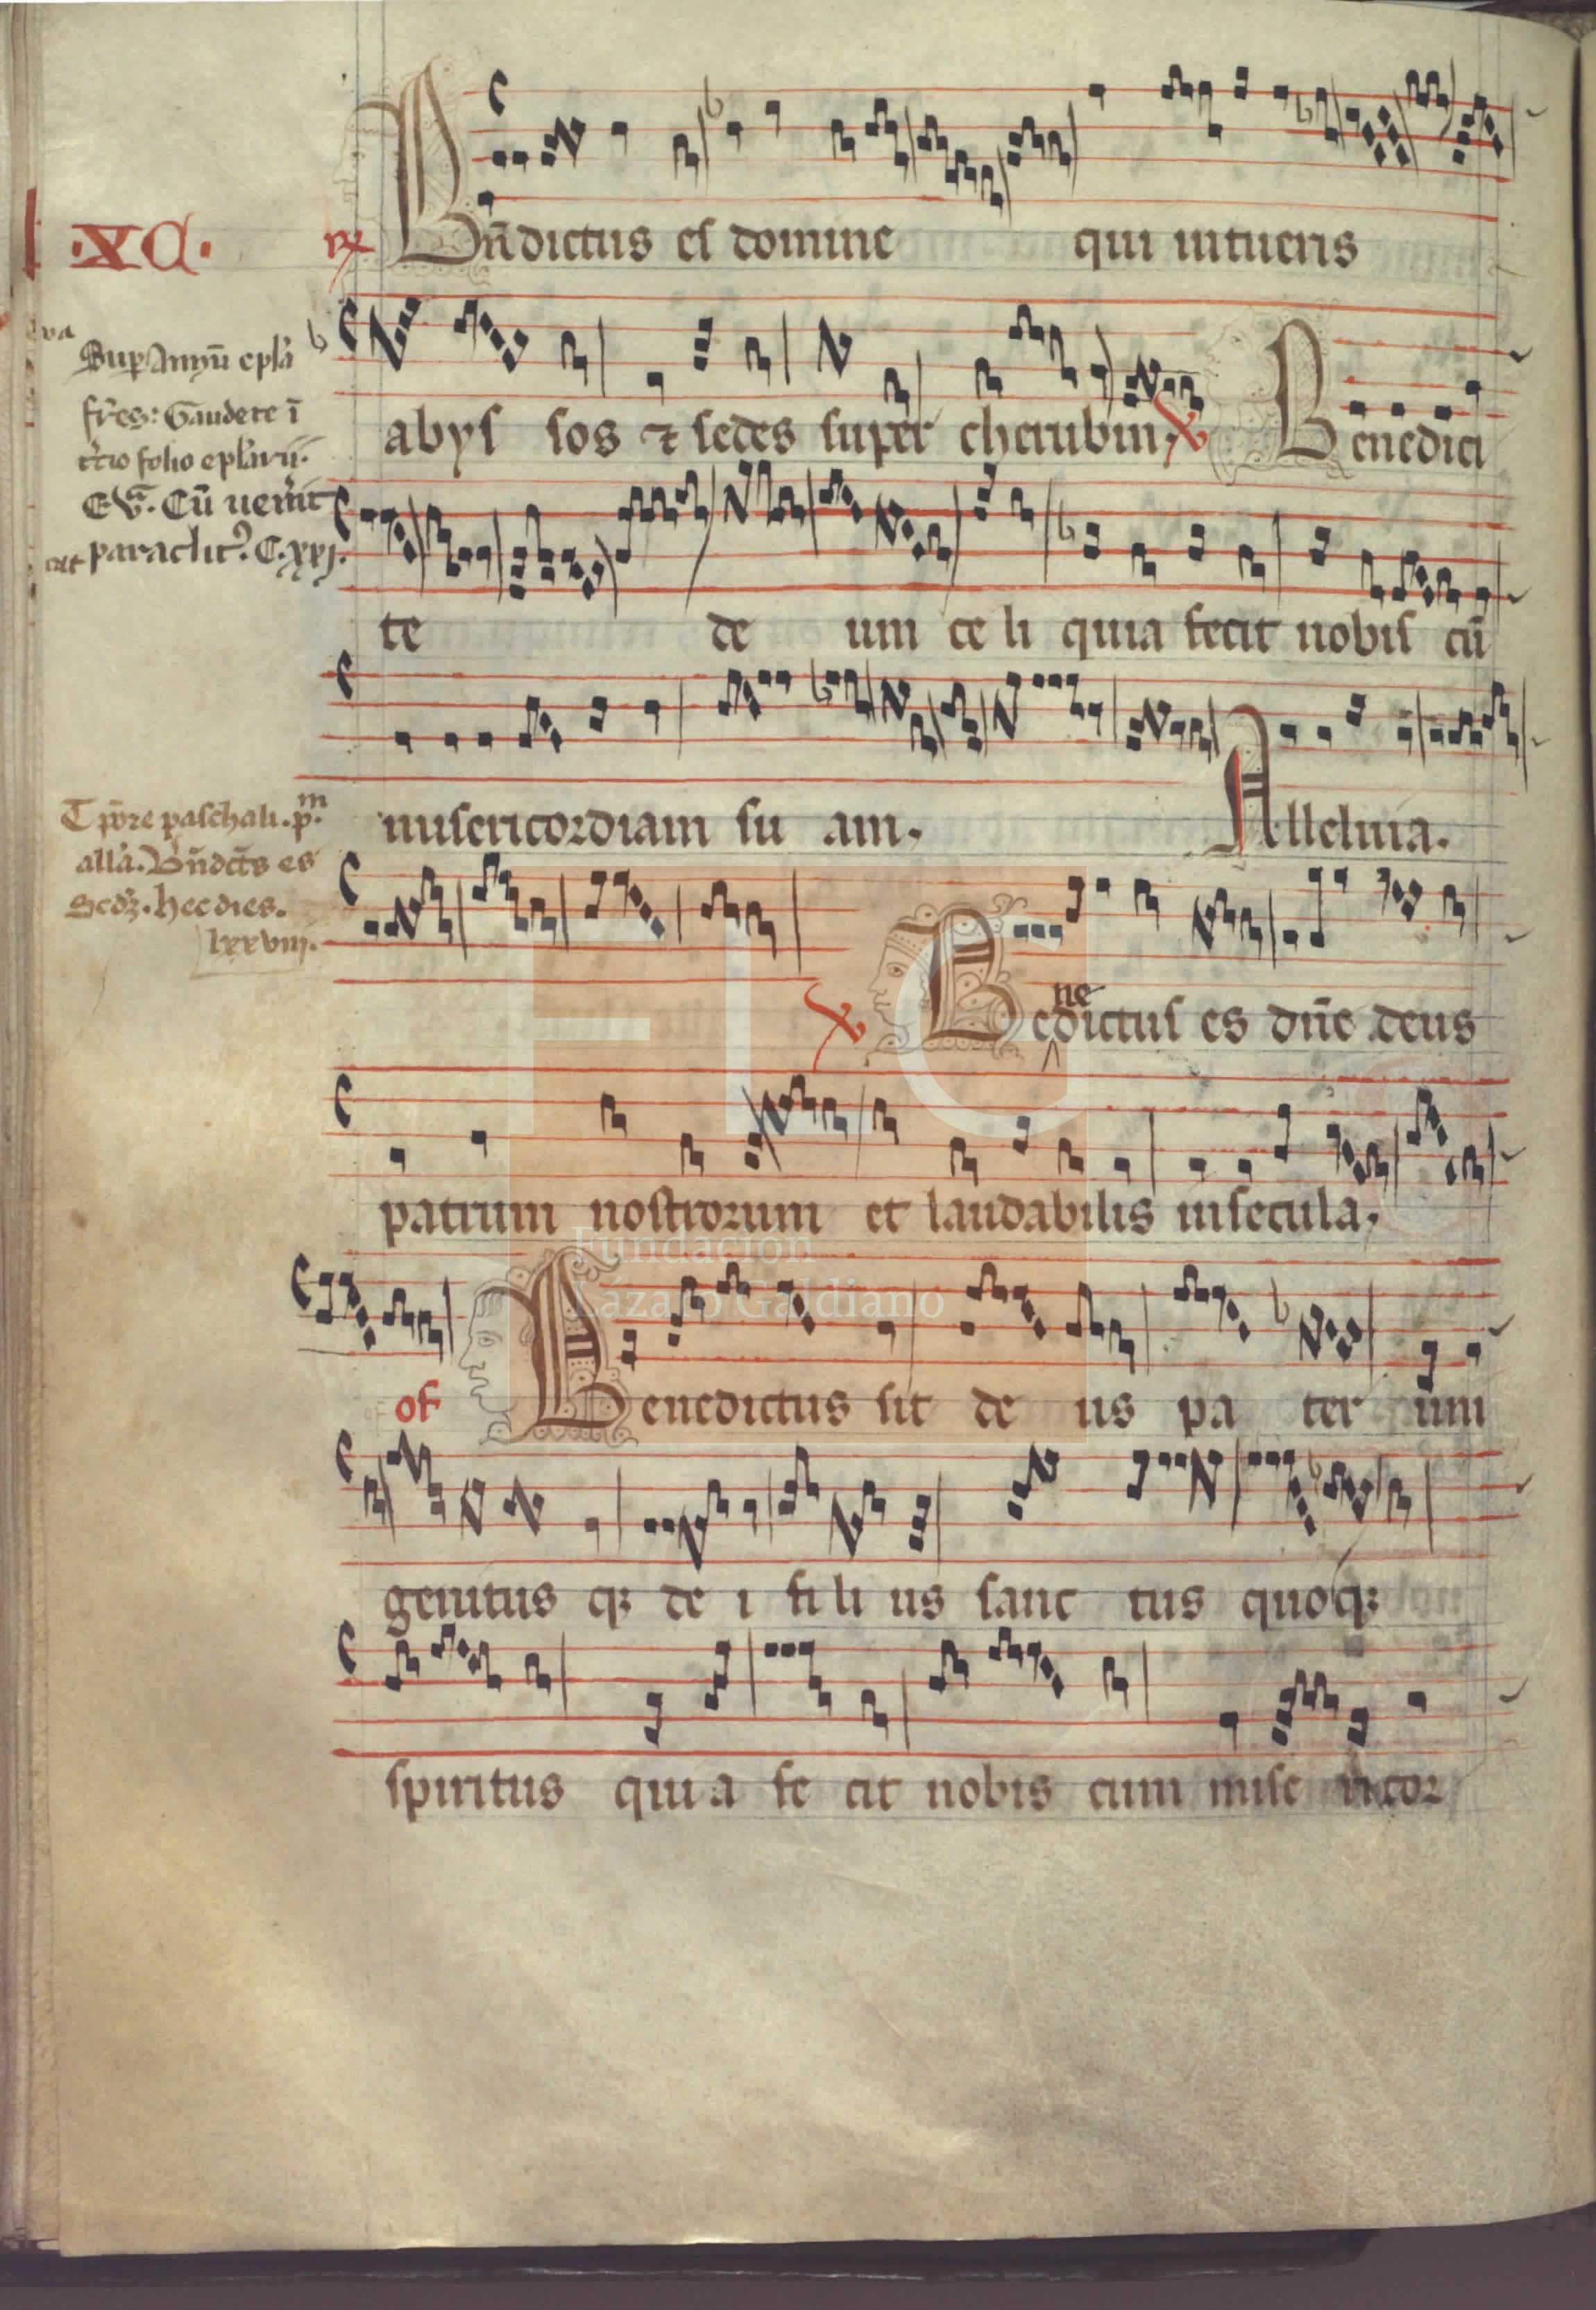 ·XC·
℟ Bn̄dictus es domine qui intueris
abys sos ⁊ sedes super cherubin. ℣ Benedici
te de um ce li quia fecit nobis cū
misericordiam su am. Alleluia.
℣ Benedictus es dn̄e deus
patrum nostrorum et laudabilis in secula.
of Benedictus sit de us pa ter uni
genitus qꝫ de i fi li us sanc tus quoqꝫ
spiritus qui a fe cit nobis cum mise ricor
fr̄es: Gaudete ī
t̄cio folio ep̄laꝝ.
EV̄. Cū uenit
paraclitꝰ. C. xxj.
T p̄ore paschali. p.m
all'a. Bn̄dc̄s es
Scd'ꝫ. hec dies.
lxxviij.
Fundación
Lázaro Galdiano
FLG